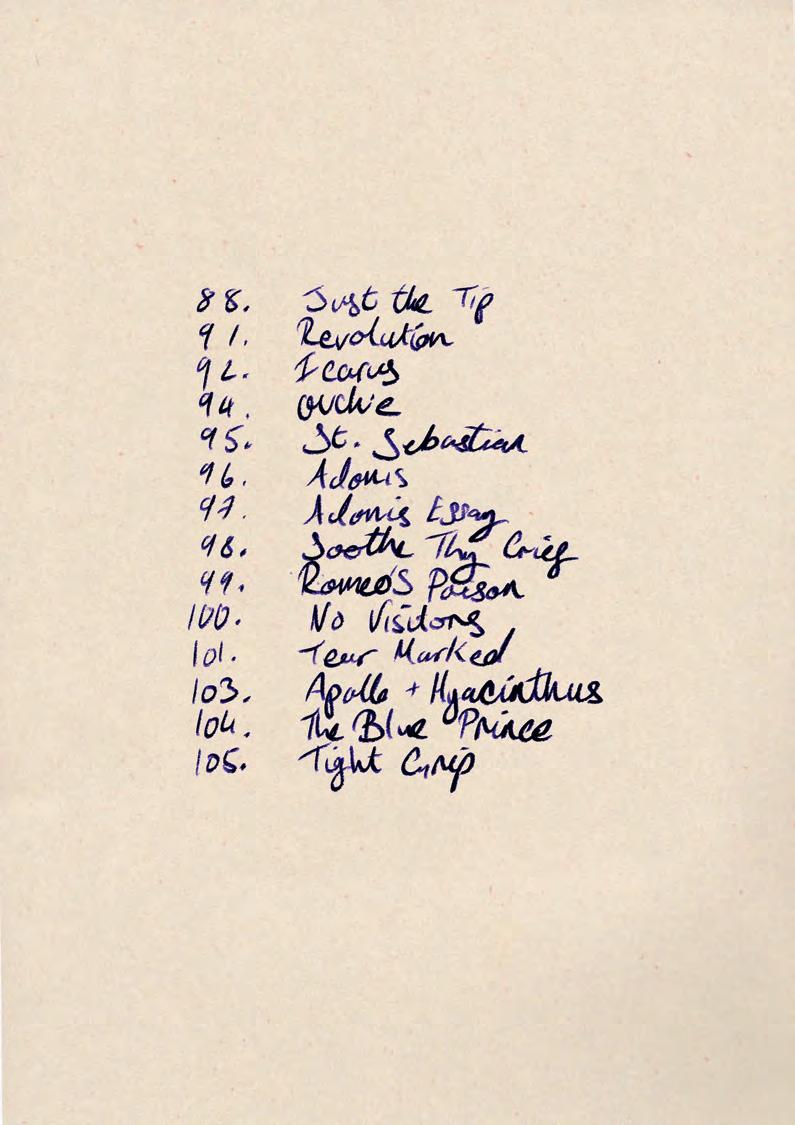 88. Just the Tip
91. Revolution
92. Icarus
94. Ouchie
95. St. Sebastian
96. Adonis
97. Adonis Essay
98. Soothe Thy Grief
99. Romeo's Poison
100. No Visitors
101. Tear Marked
103. Apollo + Hyacinthus
104. The Blue Prince
105. Tight Grip